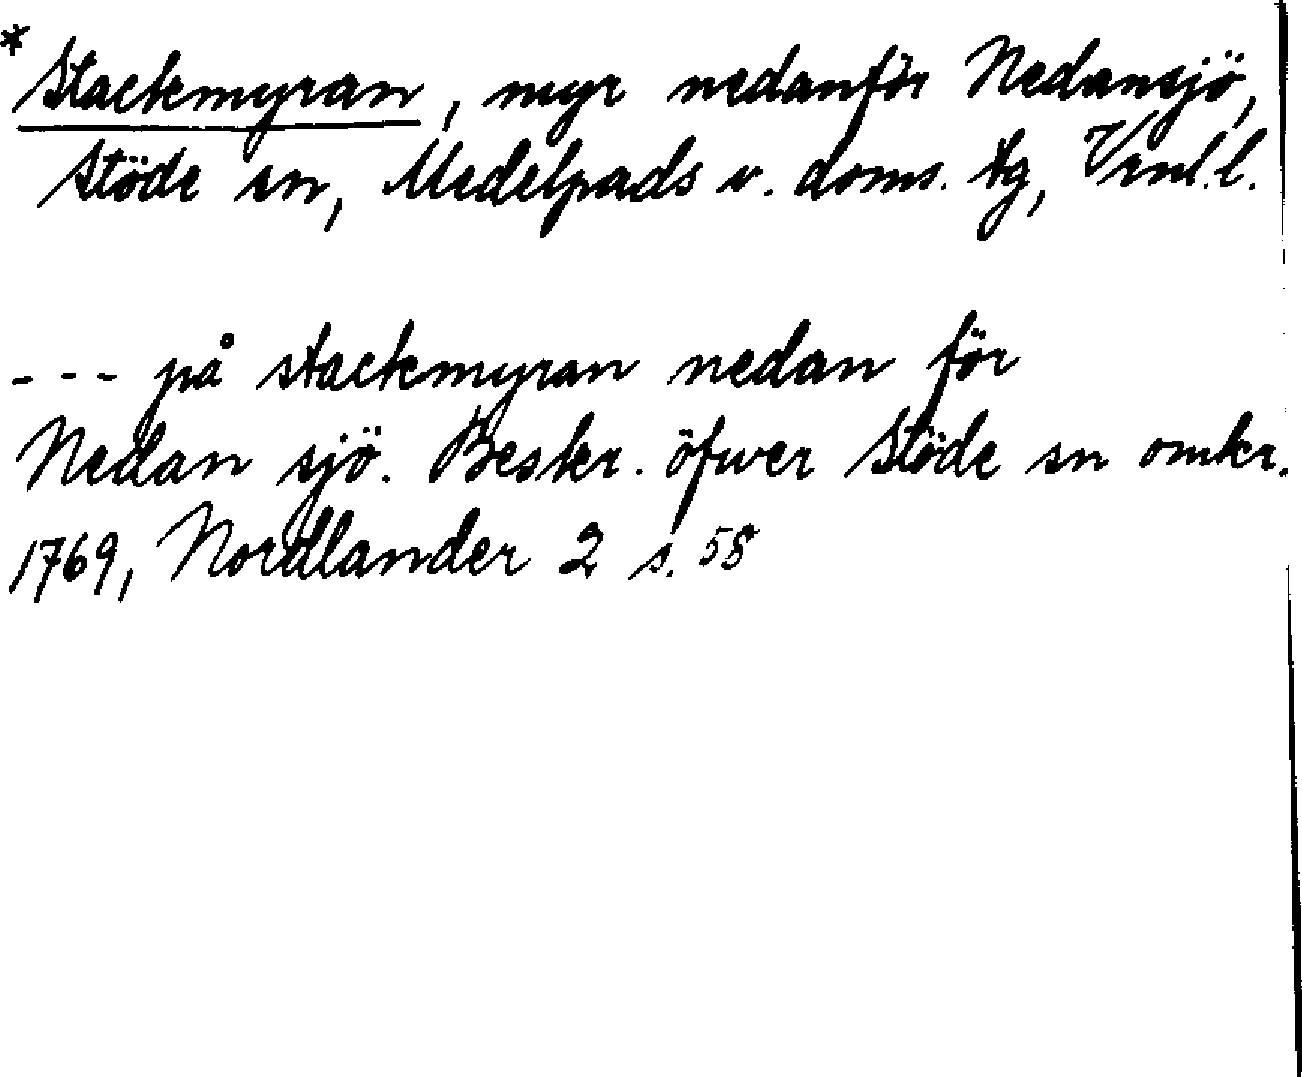 *Stackmyran, myr nedanför Nedansjö,
Stöde sn, Medelpads v. doms. tg, Vrnl.l.
--- på stackmyran nedan för
Nedan sjö. Beskr. öfwer Stöde sn omkr.
1769, Nordlander 2 s. 58